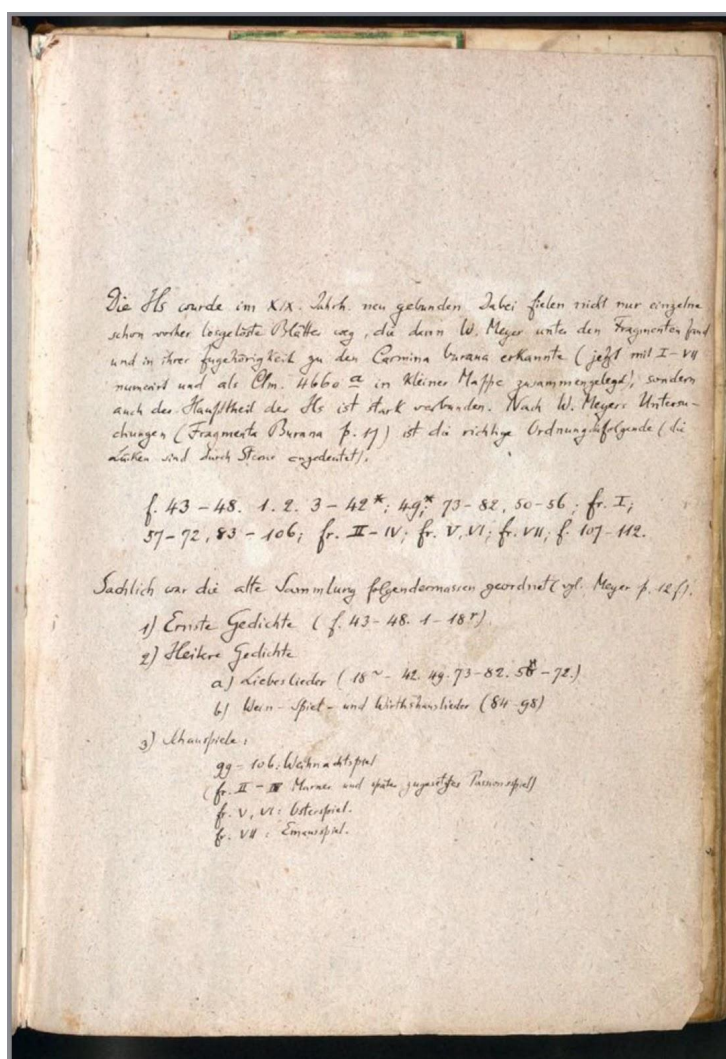 Die Hs wurde im XIX. Jahrh. neu gebunden. Dabei fielen nicht nur einzelne
schon vorher losgelöste Blätter weg, die dann W. Meyer unter den Fragmenten fand
und in ihrer Zugehörigkeit zu den Carmina burana erkannte (jetzt mit I–VII
numerirt und als Clm. 4660 a in kleiner Mappe zusammengelegt), sondern
auch der Haupttheil der Hs ist stark verbunden. Nach W. Meyers Untersu-
chungen (Fragmenta Burana p. 17) ist die richtige Ordnung folgende (die
Lücken sind durch Sterne angedeutet).
f. 43–48. 1. 2. 3–42*; 49;* 73–82, 50–56; fr. I;
57–72, 83–106; fr. II–IV; fr. V, VI; fr. VII; f. 107–112.
Sachlich war die alte Sammlung folgendermassen geordnet (vgl. Meyer p. 12 f).
1) Ernste Gedichte (f. 43–48. 1–18r).
2) Heitere Gedichte
a) Liebeslieder (18v–42. 49. 73–82. 50–72.)
b) Wein- Spiel- und Wirthshauslieder (84–98)
3) Schauspiele:
99–106: Weihnachtspiel
(fr. II–IV Marner und später zugesetztes Passionsspiel)
fr. V, VI: Osterspiel.
fr. VII: Emausspiel.